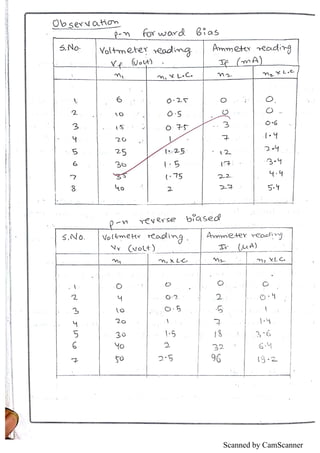 Observation
p-n forward Bias
S.No. Voltmeter reading Vf (Volt) Ammeter reading If (mA)
n1 n1 x L.C. n2 n2 x L.C
1 6 0.25 0 0
2 10 0.5 0 0
3 15 0.75 3 0.6
4 20 1 7 1.4
5 25 1.25 12 2.4
6 30 1.5 17 3.4
7 35 1.75 22 4.4
8 40 2 27 5.4
p-n reverse biased
S.No. Voltmeter reading. Vr (volt) Ammeter reading Ir (μA)
n1 n1 x L.C n2 n2 x L.C
1 0 0 0 0
2 4 0.2 2 0.4
3 10 0.5 5 1
4 20 1 7 1.4
5 30 1.5 18 3.6
6 40 2 32 6.4
7 50 2.5 96 19.2
Scanned by CamScanner